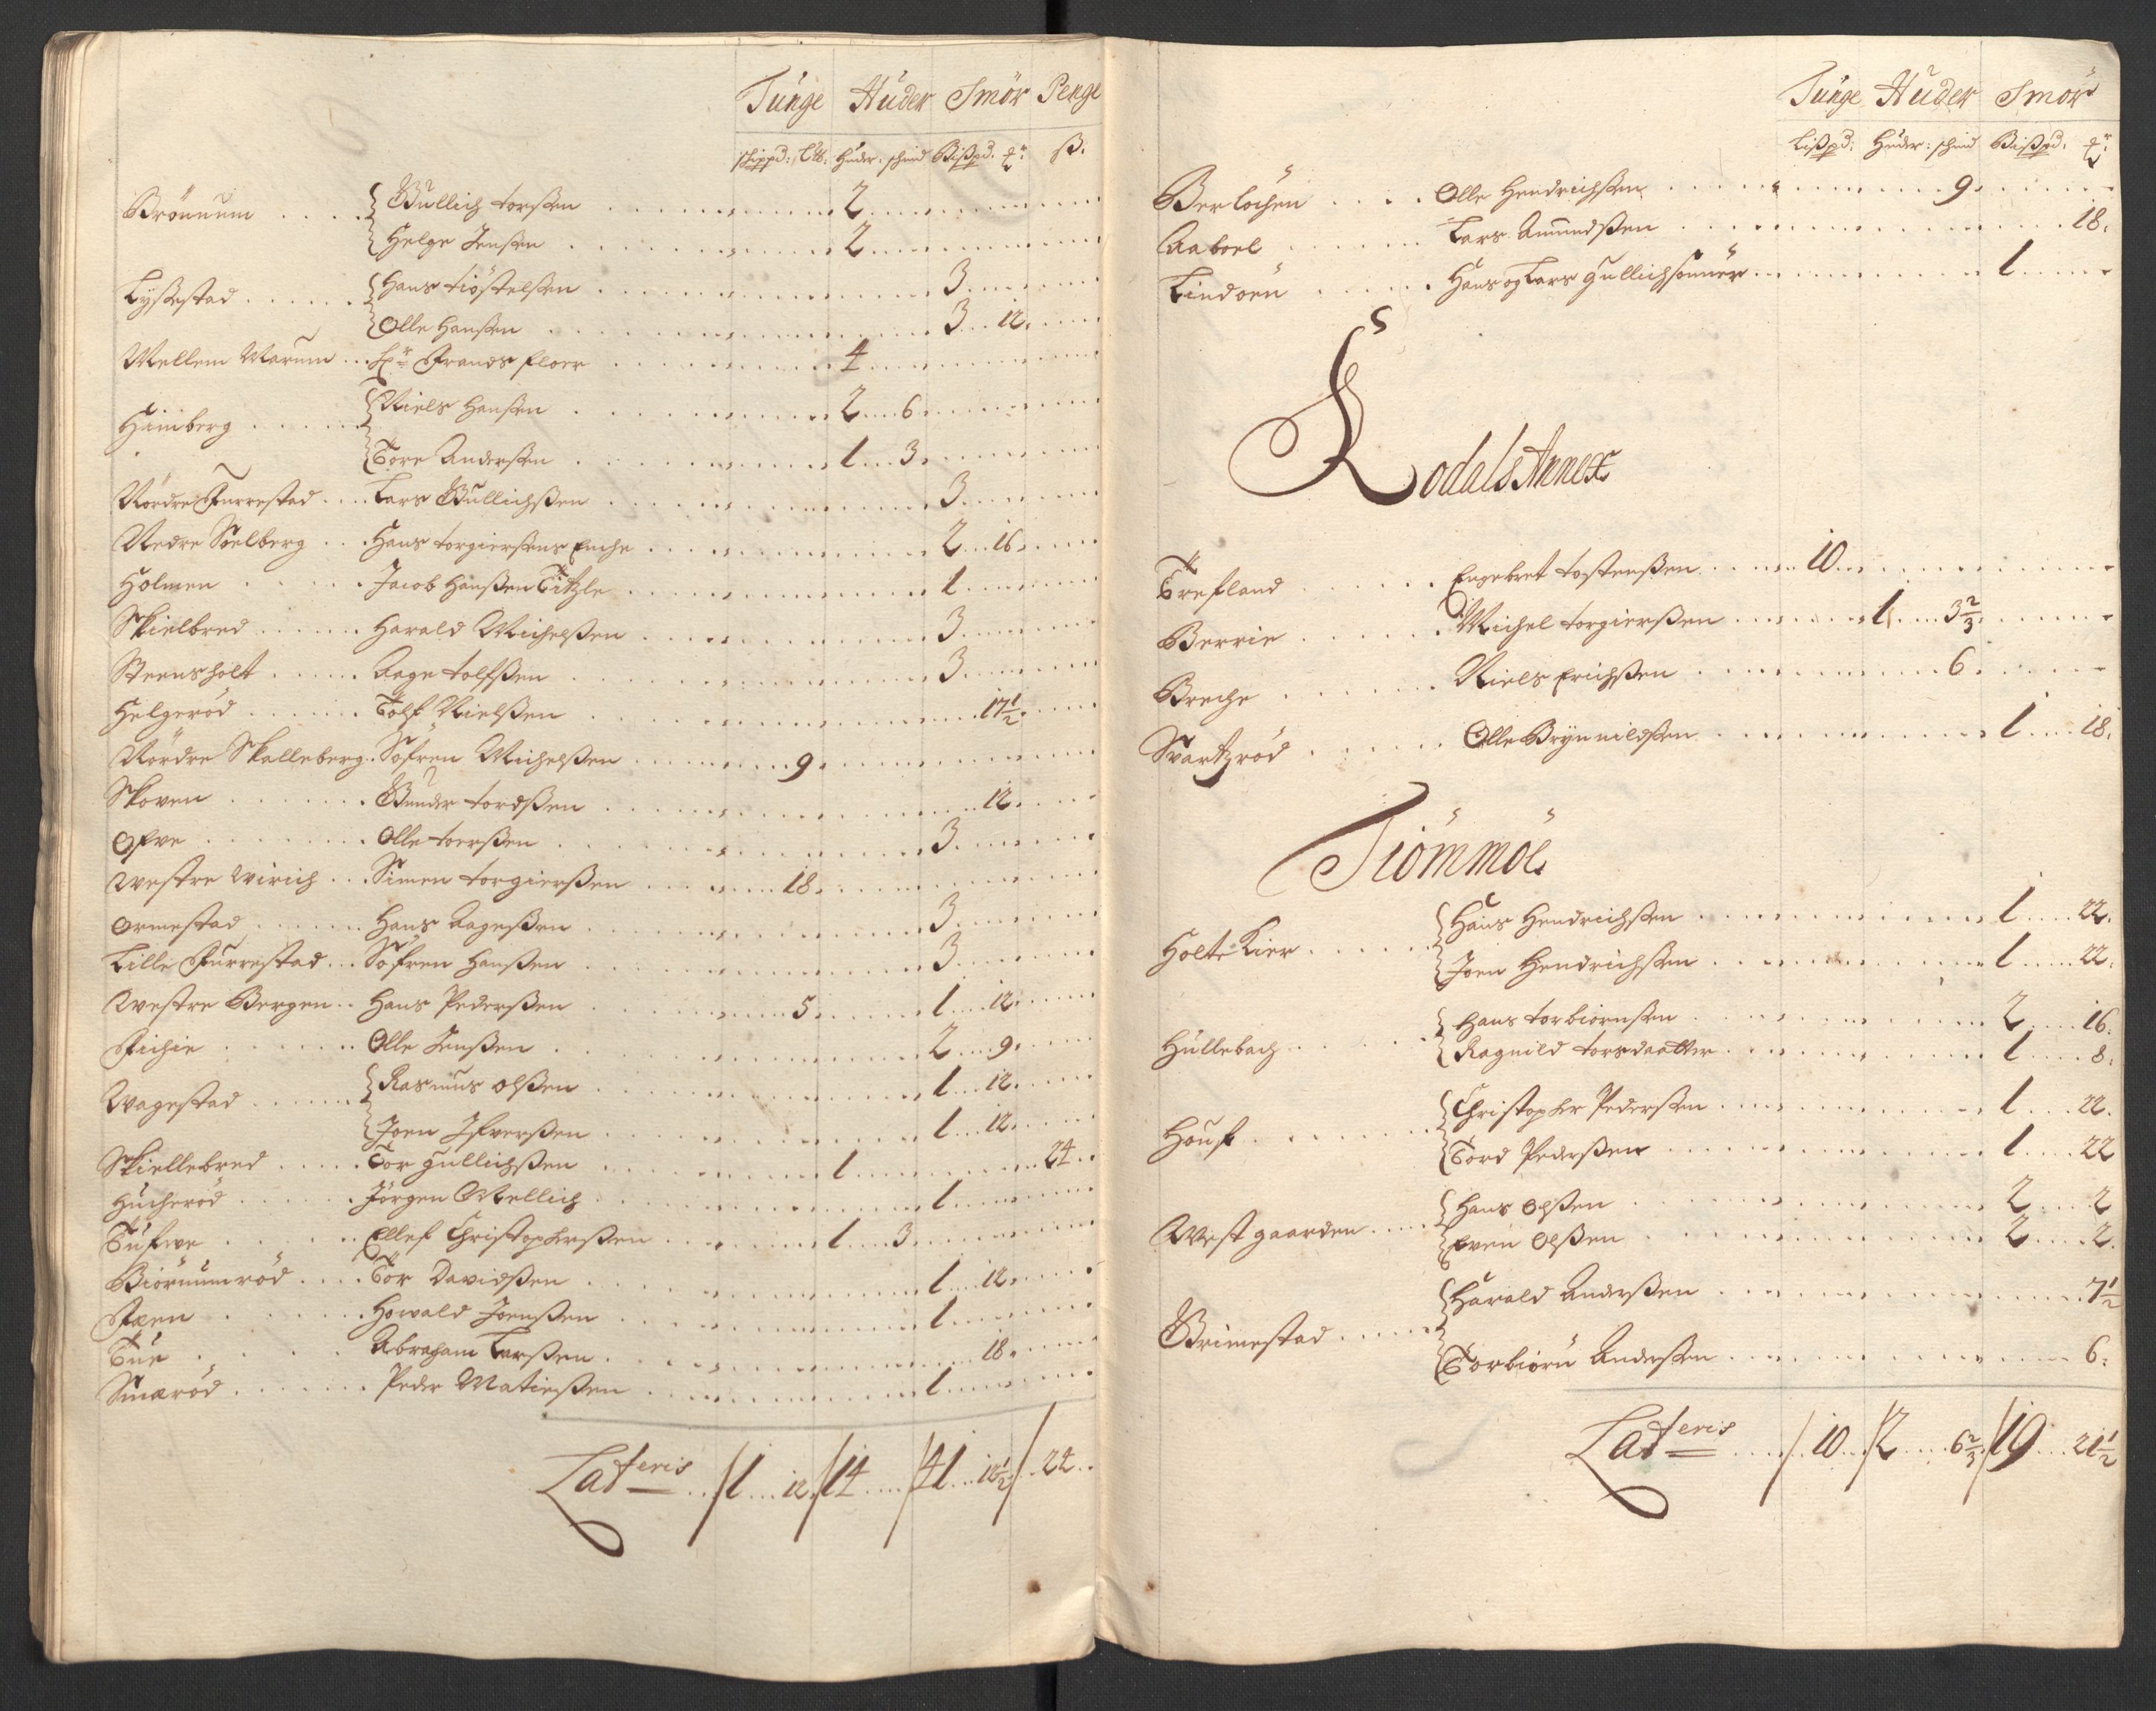 Tunge Huder Smör Penge
schippd: L℔: Huder: schind Bißpd. ß.
Brönnum .... Gullich torßen ........ 2 ........
Helge Jensen ........ 2 ........
Lyßestad ...... Hans tiöstelsen ........ 3 ........
Olle Hansen ........ 3 ... 12 .....
Mellem Marum ... Hr: Frands Floer ........ 4 ........
Himberg ...... Niels Hansen ........ 2 .... 6 ........
Tore Andersen ........ 1 .... 3 ........
Nordre Furrestad .... Lars Gullichßen ........ 3 ........
Nedre Soelberg ... Hans torgiersens Enche ........ 2 ... 16 .....
Holmen ...... Jacob Hanßen Titzle ........ 1 ........
Skielbred ...... Harald Michelßen ........ 3 ........
Steensholt ...... Aage tolfßen ........ 3 ........
Helgeröd ...... Tolf Nielßen ........ 17½ .....
Nördre Skalleberg . Söfren Michelßen ........ 9 ........
Skoven ...... Gunder tordßen ........ 12 .....
Ofve ...... Olle toerßen ........ 3 ........
Westre Wirich ... Simen torgierßen ........ 18 ........
Ormestad ...... Hans Aageßen ........ 3 ........
Lille Furrestad ... Söfren Hanßen ........ 3 ........
Westre Bergen .. Hans Pederßen ........ 5 ........ 1 .... 12 .....
Fichie ...... Olle Jenßen ........ 2 .... 9 .....
Wagestad ...... Rasmus olßen ........ 1 ... 12 .....
Joen Ifverßen ........ 1 ... 12 .....
Skiellebred ..... Tor gullichßen ........ 1 ........ 24 ..
Hucheröd ...... Jörgen Mellich ........ 1 ........
Tufwe ...... Ellef Christopherßen ........ 1 .... 3 ........
Biörnumröd .... Tor Davidßen ........ 1 .... 12 .....
Fæen ...... Howald Joenßen ........ 1 ........
Tue ...... Abraham Larßen ........ 18 .....
Smæröd ...... Peder Matießen ........ 1 ........
Lateris ... 1 ... 12 . 14 .... 41 ... 12½ . 24 ..
Tunge Huder Smör
Lißpd: Huder: schind Bißpd:
Berlochen .... Olle Hendrichßen ........ 9 ........
Aaboel ...... Lars Amundßen ........ 18.
Lindoen ...... Hans og Lars Gullichsönner ........ 1 ........
Kodals Annex
Trefland ...... Engebret tostenßen ........ 10 ........
Berrie ...... Michel torgierßen ........ 1 .... 3⅔ ........
Breche ...... Niels Erichßen ........ 6 ........
Svartzröd ...... Olle Brynnildßen ........ 1 .... 18.
Tiömmöe
Holte Kier ...... Hans Hendrichßen ........ 1 .... 22.
Joen Hendrichßen ........ 1 .... 22.
Hullebach ...... Hans torbiörnßen ........ 2 .... 16.
Ragnild torsdaatter ........ 1 .... 8.
Houf ...... Christopher Pederßen ........ 1 .... 22.
Tord Pederßen ........ 1 .... 22
Westgaarden .... Hans Olßen ........ 2 .... 2
Even Olßen ........ 2 .... 2.
Grimestad ..... Harald Anderßen ........ 7½
Torbiörn Anderßen ........ 6.
Lateris .... 10 . 2 .... 6⅔ . 19 ... 21½